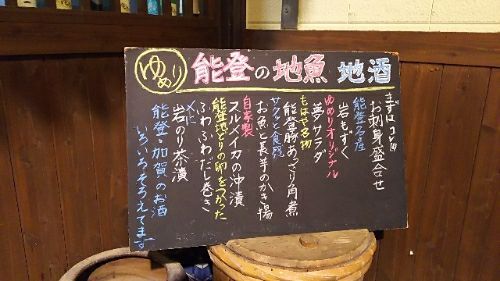 ゆめり
能登の地魚 地酒
まずはコレ
お刺身盛合せ
能登名産
岩もずく
ゆめりオリジナル
夢サラダ
もはや名物
能登豚あっさり角煮
サクッと食感
お魚と長芋のかき揚
自家製
スルメイカの沖漬
能登地どりの卵をつかった
ふわふわだし巻き
〆に
岩のり茶漬
能登・加賀のお酒
いろいろそろえてます